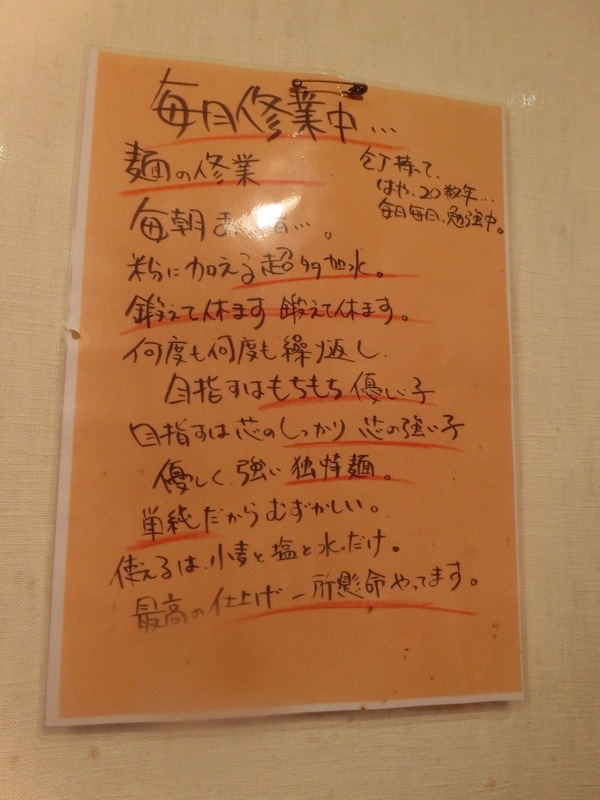 毎月修業中...
麺の修業
包丁持って、
はや、20数年...
毎月毎日、勉強中。
毎朝
粉に加える超多加水。
鍛えて休ます 鍛えて休ます。
何度も何度も繰り返し、
目指すはもちもち優しい子
目指すは芯のしっかり 芯の強い子
優しく、強い独特麺。
単純だからむずかしい。
使えるは、小麦と塩と水だけ。
最高の仕上げ 一所懸命やってます。